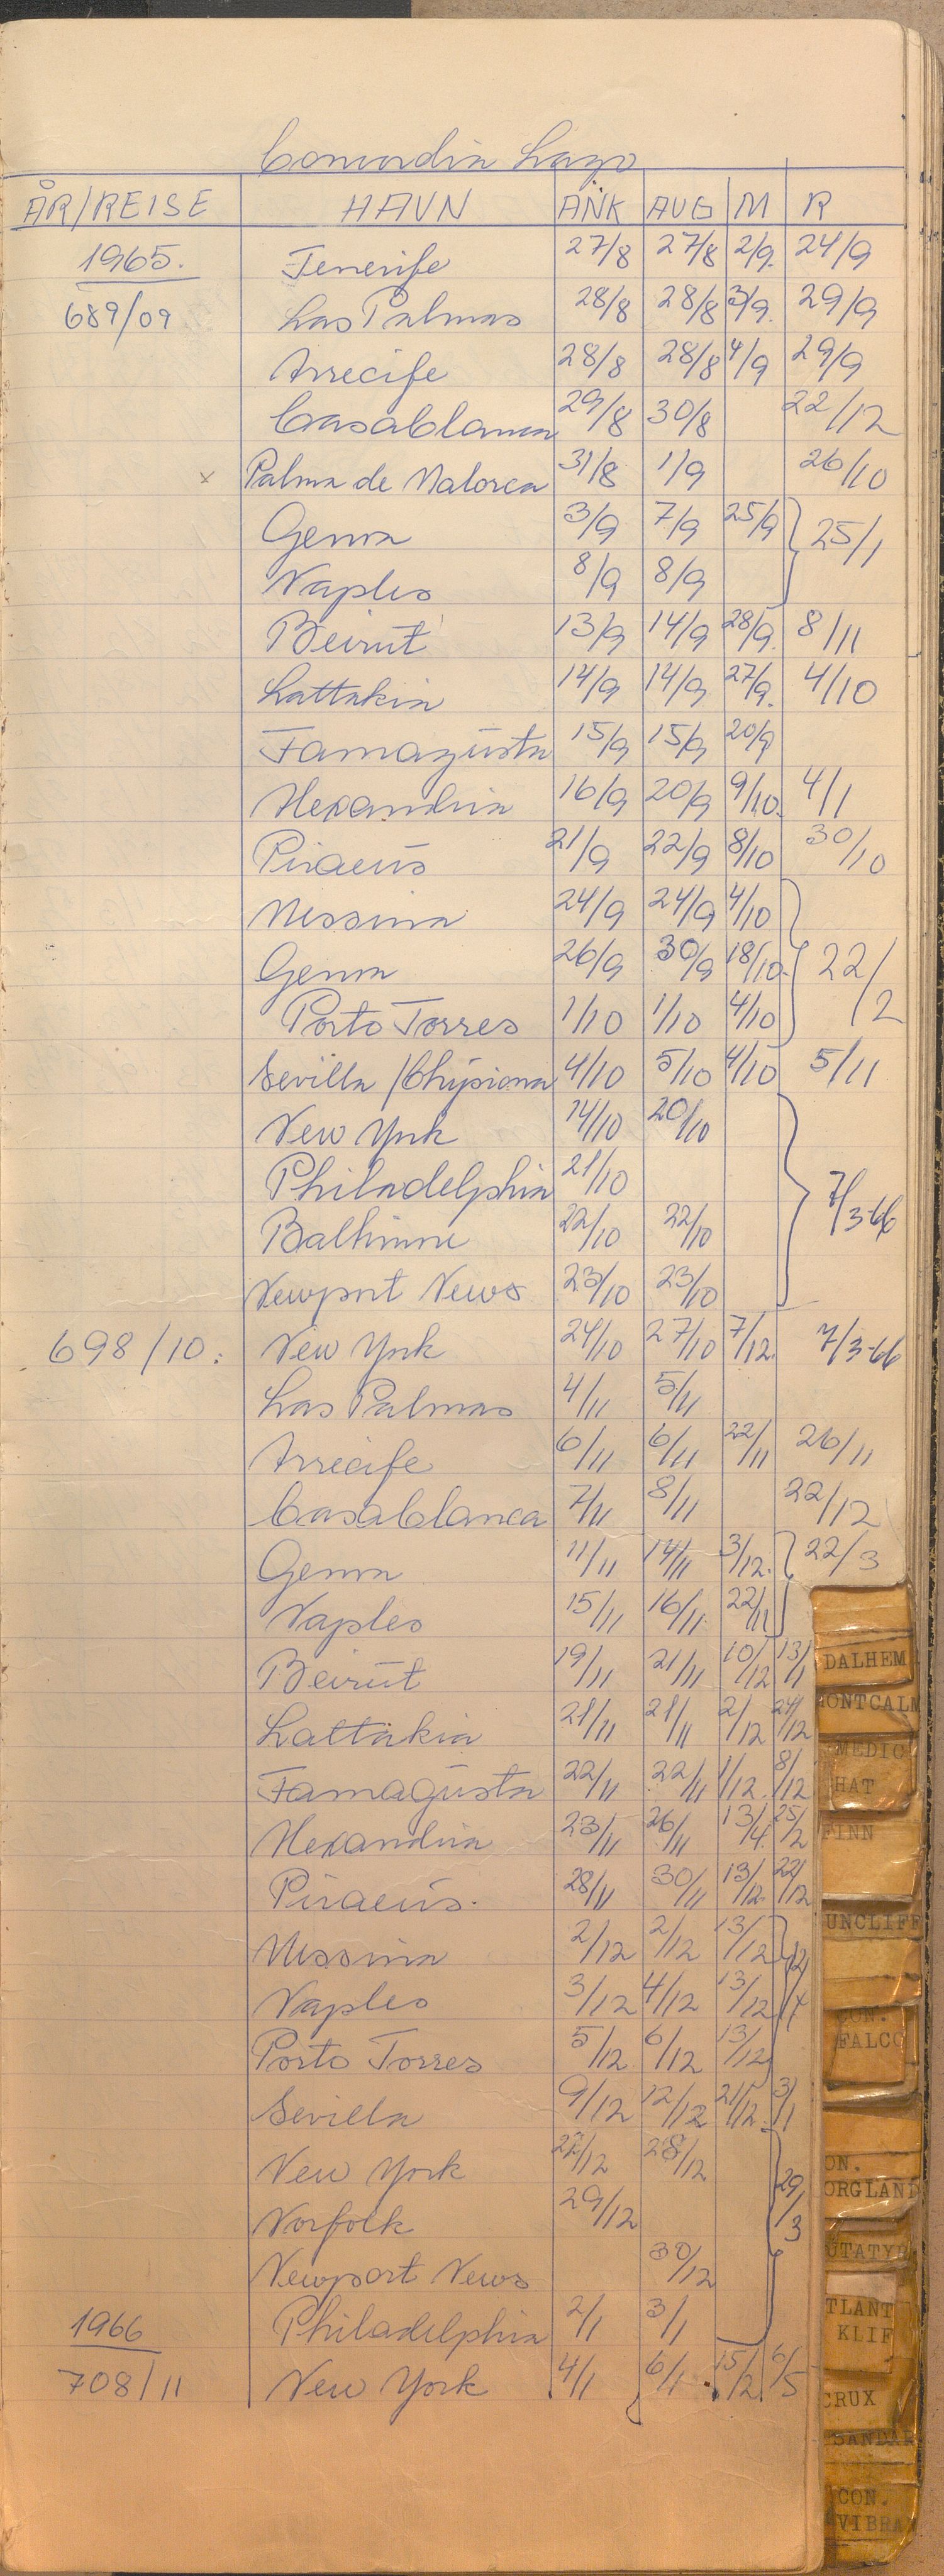 Concordia Lago
ÅR/REISE HAVN ANK AVG M R
1965. Tenerife 27/8 27/8 2/9. 24/9
689/09 Las Palmas 28/8 28/8 3/9. 29/9
Arrecife 28/8 28/8 4/9 29/9
Casablanca 29/8 30/8 22/12
x Palma de Malorca 31/8 1/9 26/10
Genova 3/9 7/9 25/9 } 25/1
Naples 8/9 8/9
Beirut 13/9 14/9 28/9. 8/11
Lattakia 14/9 14/9 27/9. 4/10
Famagusta 15/9 15/9 20/9
Alexandria 16/9 20/9 9/10. 4/1
Piraeus 21/9 22/9 8/10 30/10
Messina 24/9 24/9 4/10 }
Genova 26/9 30/9 18/10. } 22/2
Porto Torres 1/10 1/10 4/10
Sevilla /Chipiona 4/10 5/10 4/10 5/11
New York 14/10 20/10
Philadelphia 21/10 } 7/3-66
Baltimore 22/10 22/10
Newport News 23/10 23/10
698/10. New York 24/10 27/10 7/12. 7/3-66
Las Palmas 4/11 5/11
Arrecife 6/11 6/11 22/11 26/11
Casablanca 7/11 8/11 22/12
Genova 11/11 14/11 3/12. } 22/3
Naples 15/11 16/11. 22/11
Beirut 19/11 21/11 10/12 13/1
DALHEM
Lattakia 21/11 21/11 2/12 24/12
MONTCALM
Famagusta 22/11 22/11 1/12. 8/12
MEDIC
HAT
Alexandria 23/11 26/11 13/4. 25/2
FINN
Piraeus. 28/11 30/11 13/12. 22/12
UNCLIFF
Messina 2/12 2/12 13/12 }
Naples 3/12 4/12 13/12
CON.
FALCO
Porto Torres 5/12 6/12 13/12
Sevilla 9/12 12/12 21/12. 3/1
New York 22/12 28/12
CON.
ORGLAND
Norfolk 29/12 } 29/3
Newport News 30/12
UTATYR
1966 Philadelphia 2/1 3/1
TLANT
KLIF
708/11 New York 4/1 6/1 15/2 6/5
CRUX
SANDAR
CON.
VIBRA